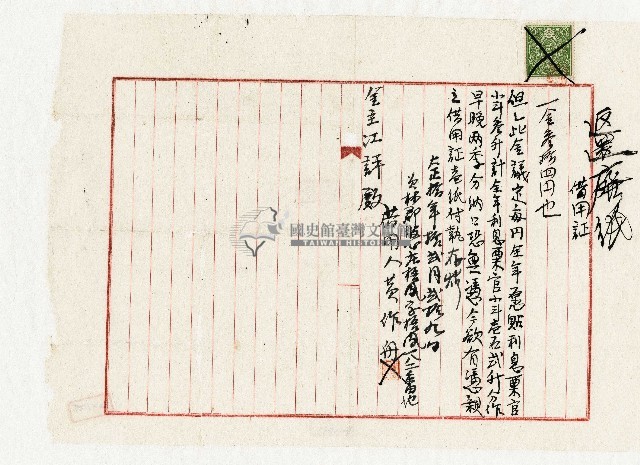 返還廢紙
借用証
一金參拾四円也
但シ此金議定每円全年應貼利息粟官
小斗參升計全年利息粟官小斗壱石弍升分作
早晚兩季分納口恐無憑今欲有憑親
立借用証壱紙付執存炤
大正拾年拾弍月弍拾九日
員林郡
番地
借用人黃作舟
金主江評殿
國史館臺灣文獻館
TAIWAN HISTORICA